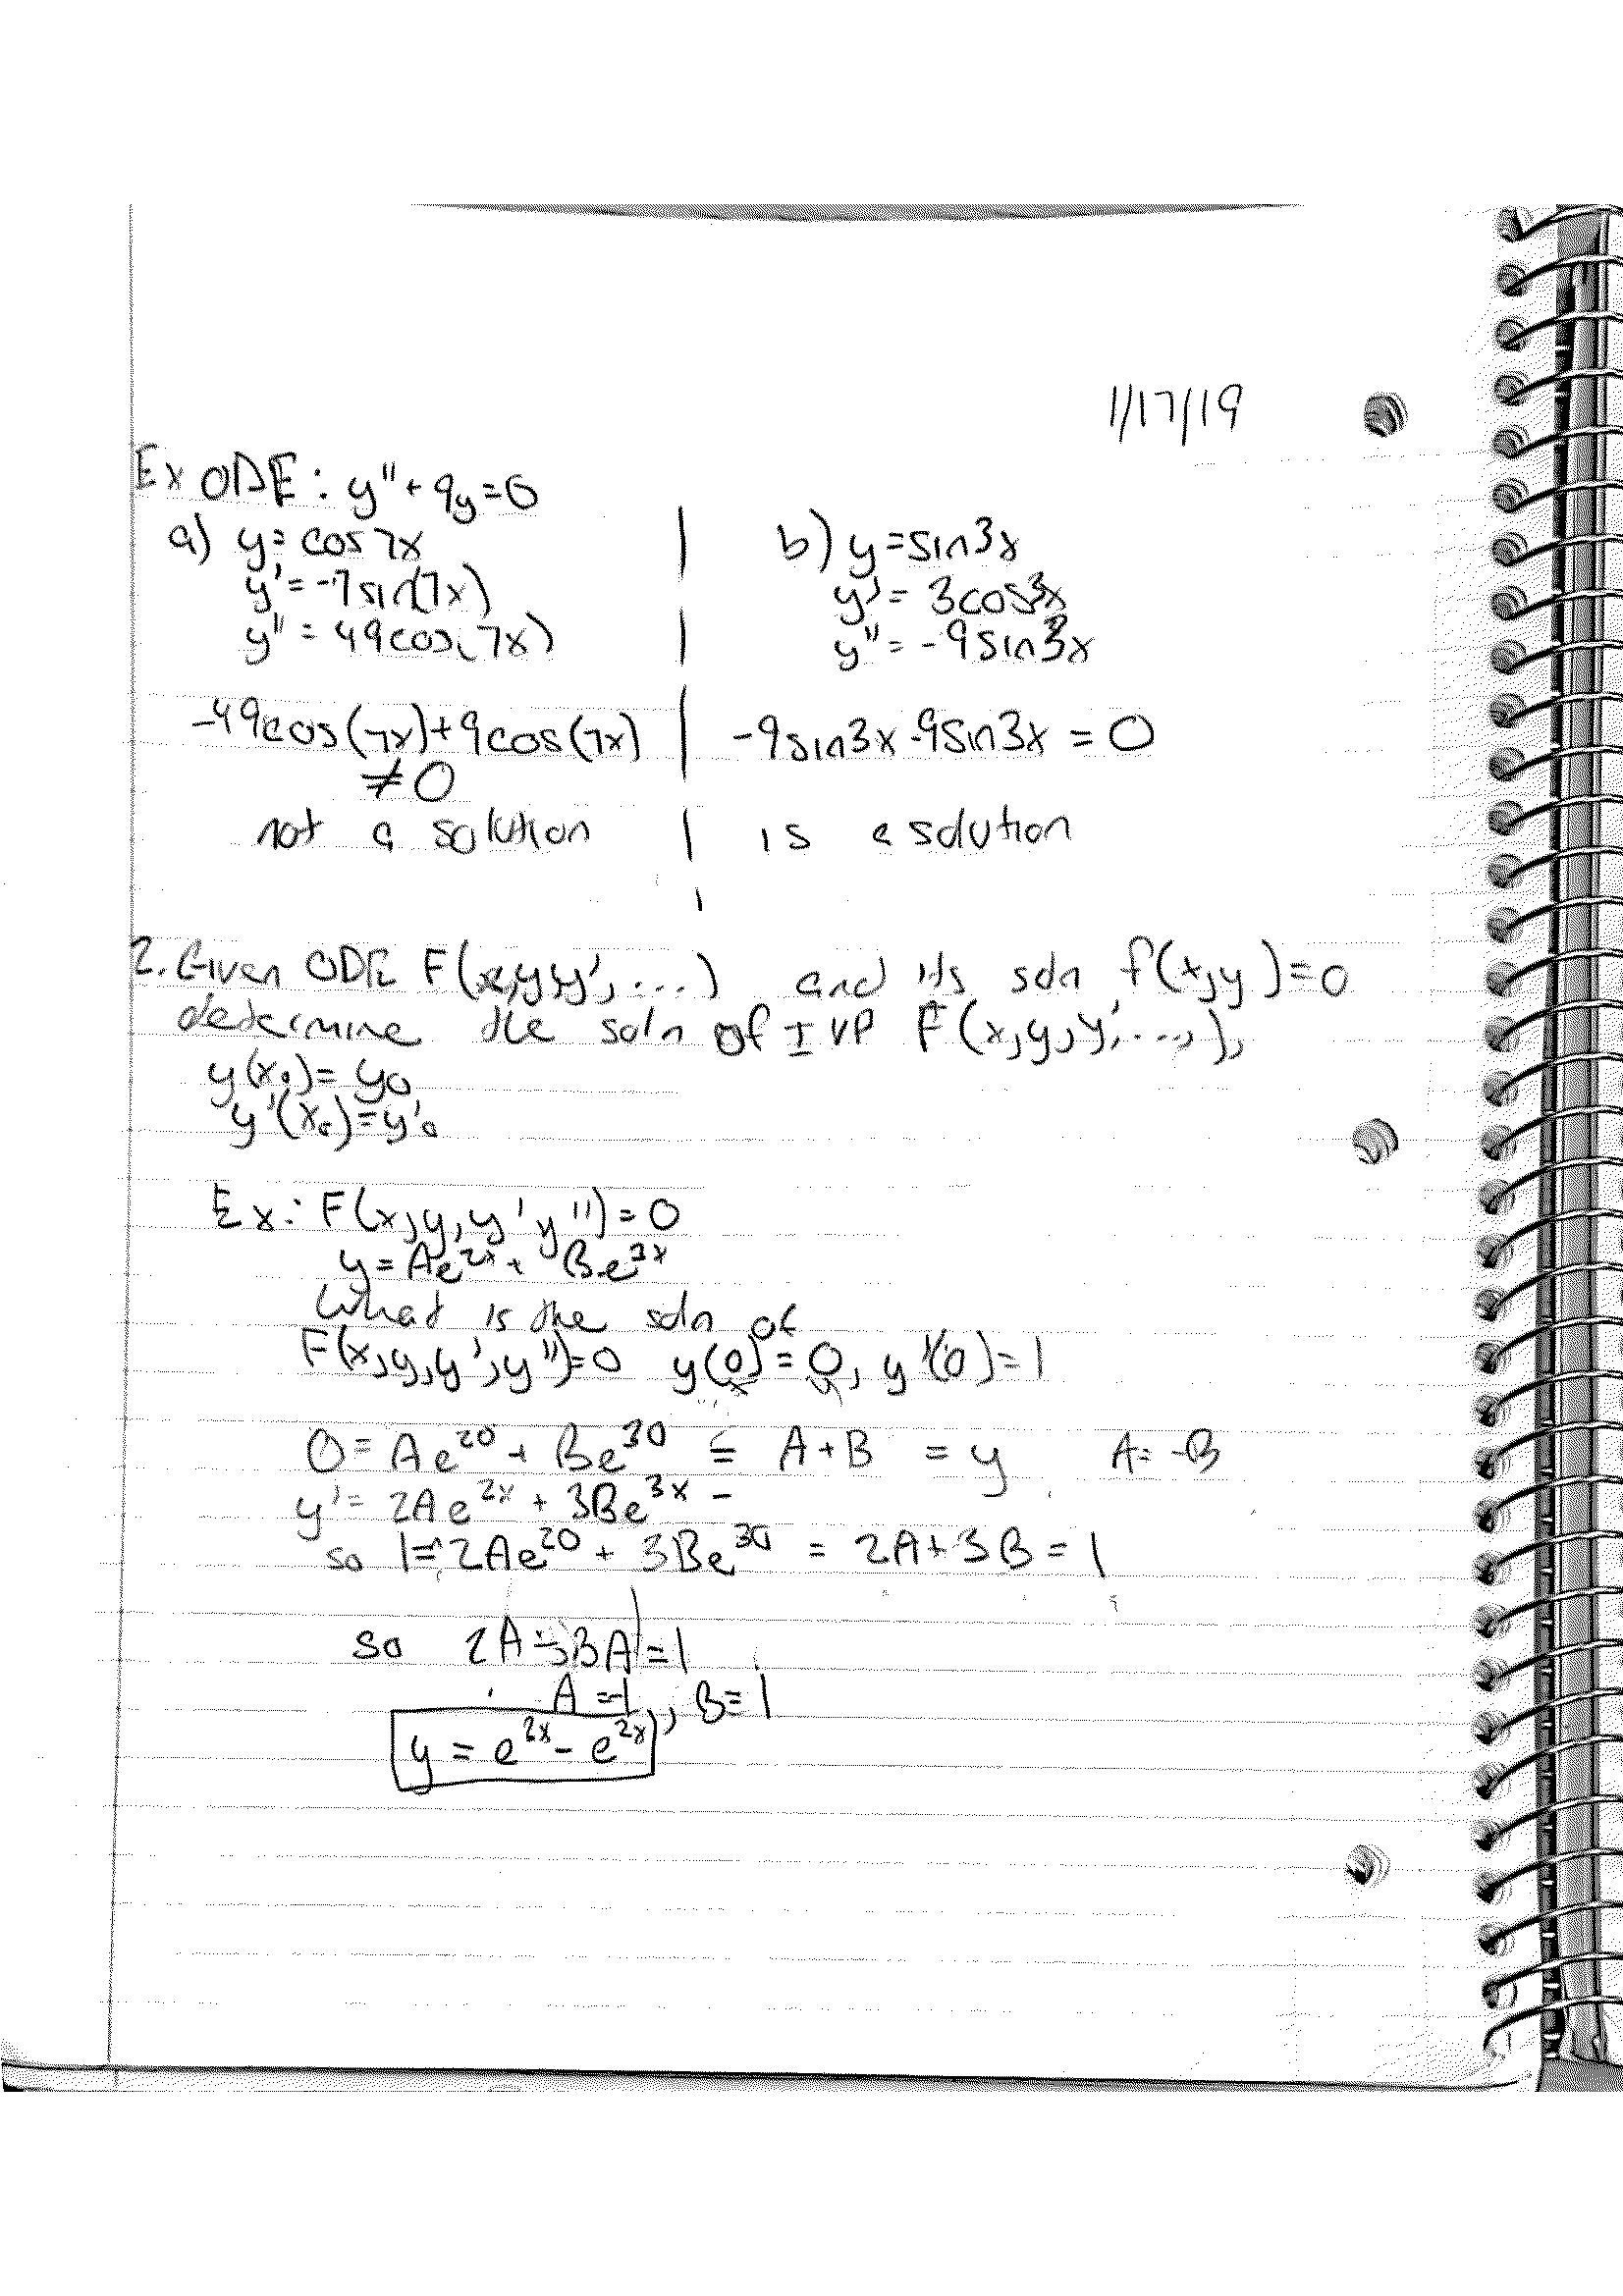 1/17/19
Ex ODE: y'' + 9y = 0
a) y = cos 7x
y' = -7 sin(7x)
y'' = 49cos(7x)
-49cos(7x)+9cos(7x)
≠ 0
not a solution
b) y = sin3x
y' = 3cos3x
y'' = -9sin3x
-9sin3x -9sin3x = 0
is a solution
2. Given ODE F(x,y,y',...) and its soln f(x,y)=0
determine the soln of IVP F(x,y,y',...,),
y(x₀) = y₀
y'(x₀)=y'₀
Ex: F(x,y,y' y'') = 0
y = Ae^2x + Be^3x
What is the soln of
F(x,y,y',y'')=0 y(0) = 0, y'(0) = 1
0 = Ae^20 + Be^30 = A+B = y A = -B
y' = 2Ae^2x + 3Be^3x =
so 1 = 2Ae^20 + 3Be^30 = 2A+3B = 1
so 2A-3BA = 1
A = -1, B = 1
y = e^2x - e^2x